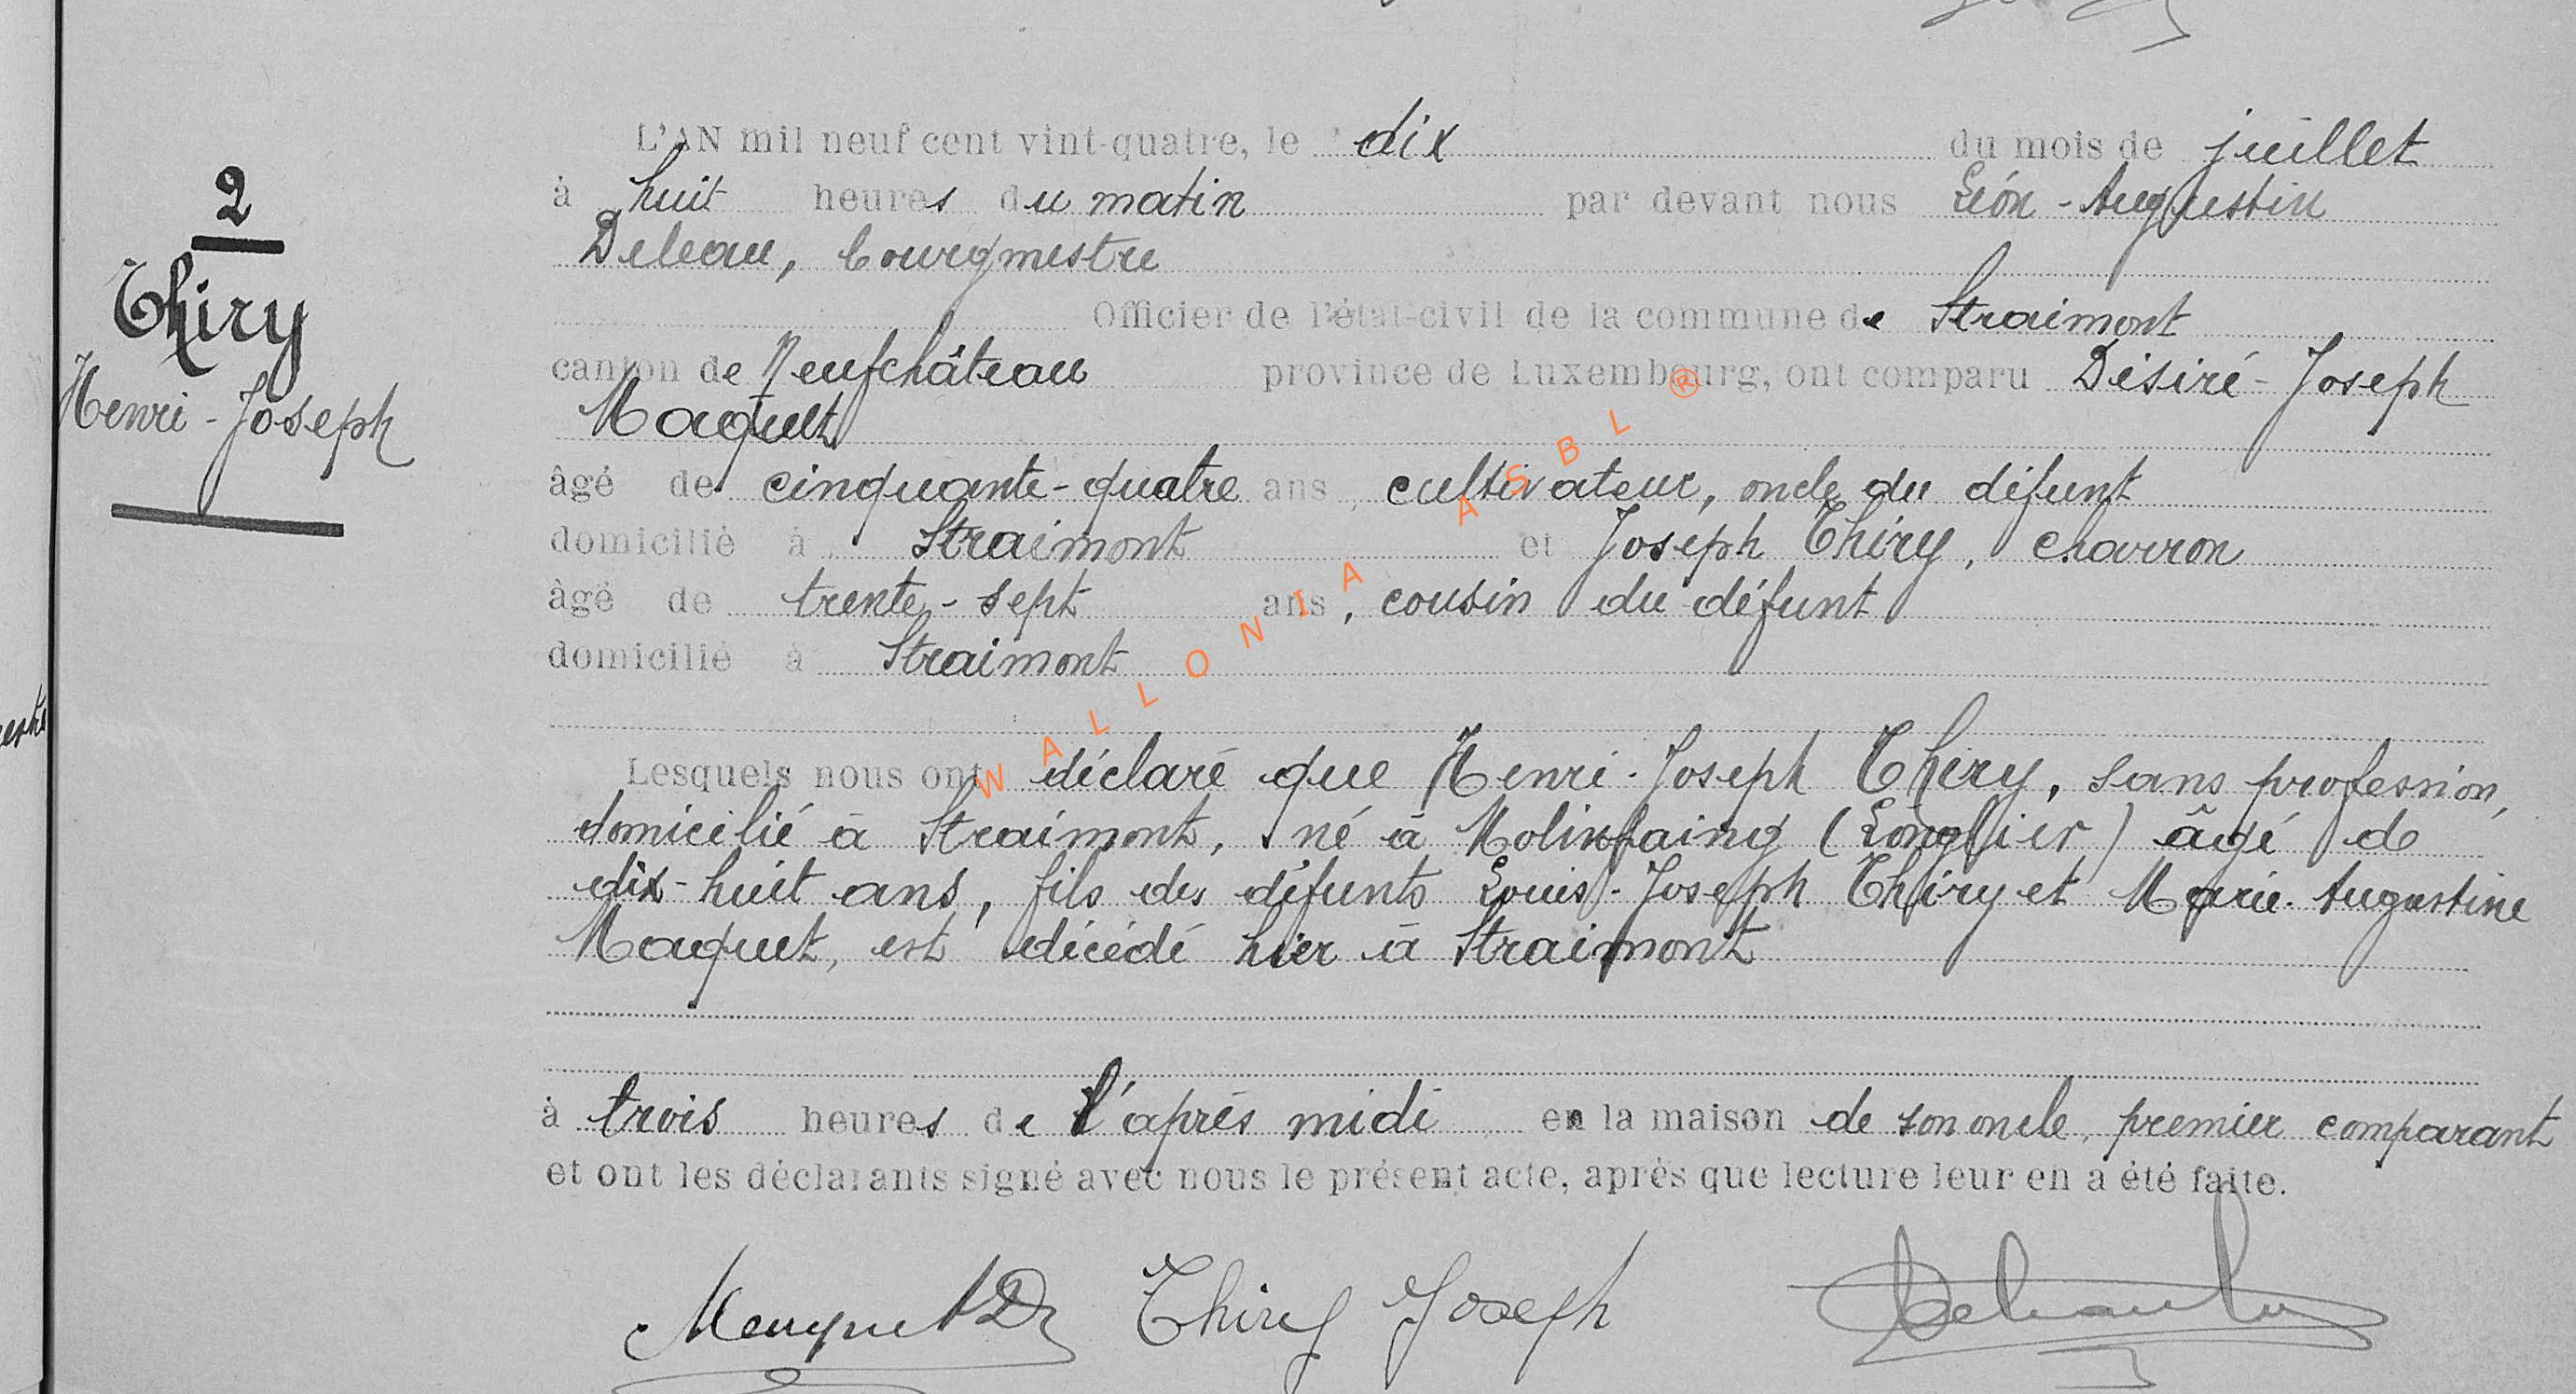 2
Thiry
Henri-Joseph
L'AN mil neuf cent vint-quatre, le dix du mois de juillet
à huit heures du matin par devant nous Léon-Augustin
Deleau, bourgmestre
Officier de l'état-civil de la commune de Straimont
canton de Neufchâteau province de Luxembourg, ont comparu Désiré-Joseph
Maquet
âgé de cinquante-quatre ans, cultivateur, oncle du défunt
domicilié à Straimont et Joseph Thiry, charron
âgé de trente-sept ans, cousin du défunt
domicilié à Straimont
Lesquels nous ont déclaré que Henri-Joseph Thiry, sans profession,
domicilié à Straimont, né à Molinfaing (Longlier) âgé de
dix-huit ans, fils des défunts Louis-Joseph Thiry et Marie-Augustine
Maquet, est décédé hier à Straimont
à trois heures de l'après midi en la maison de son oncle, premier comparant
et ont les déclarants signé avec nous le présent acte, après que lecture leur en a été faite.
Maquet D Thiry Joseph
WALLONIA ASBL ®